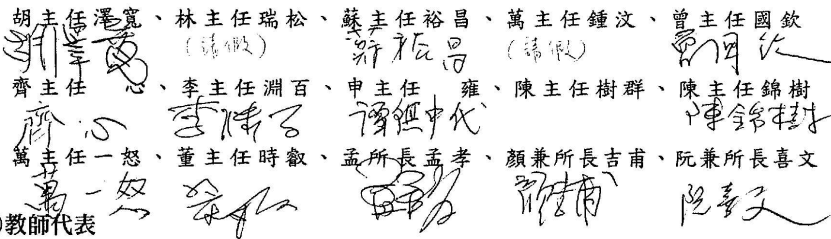 胡主任澤寬、林主任瑞松、蘇主任裕昌、萬主任鍾汶、曾主任國欽
(請假) 蘇裕昌 (請假) 曾國欽
齊主任 心、李主任淵百、申主任 雍、陳主任樹群、陳主任錦樹
齊心 陳錦樹
萬主任一怒、董主任時叡、孟所長孟孝、顏兼所長吉甫、阮兼所長喜文
萬一怒 阮喜文
教師代表